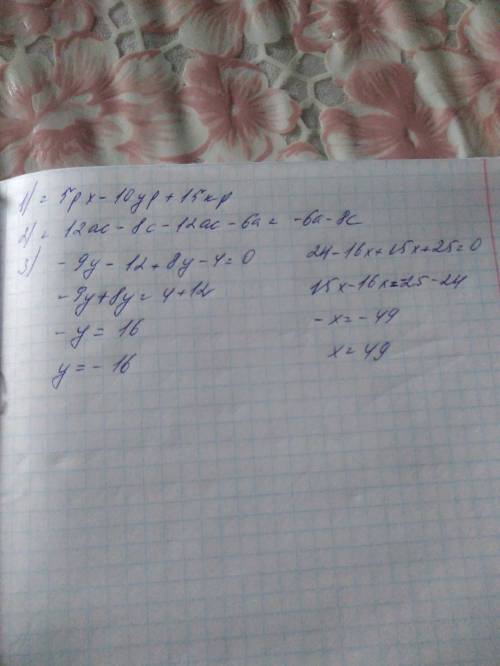 1) = 5px - 10yp + 15kp
2) = 12ac - 8c - 12ac - 6a = -6a - 8c
3) -9y - 12 + 8y - 4 = 0
-9y + 8y = 4 + 12
-y = 16
y = -16
24 - 16x + 15x + 25 = 0
15x - 16x = -25 - 24
-x = -49
x = 49